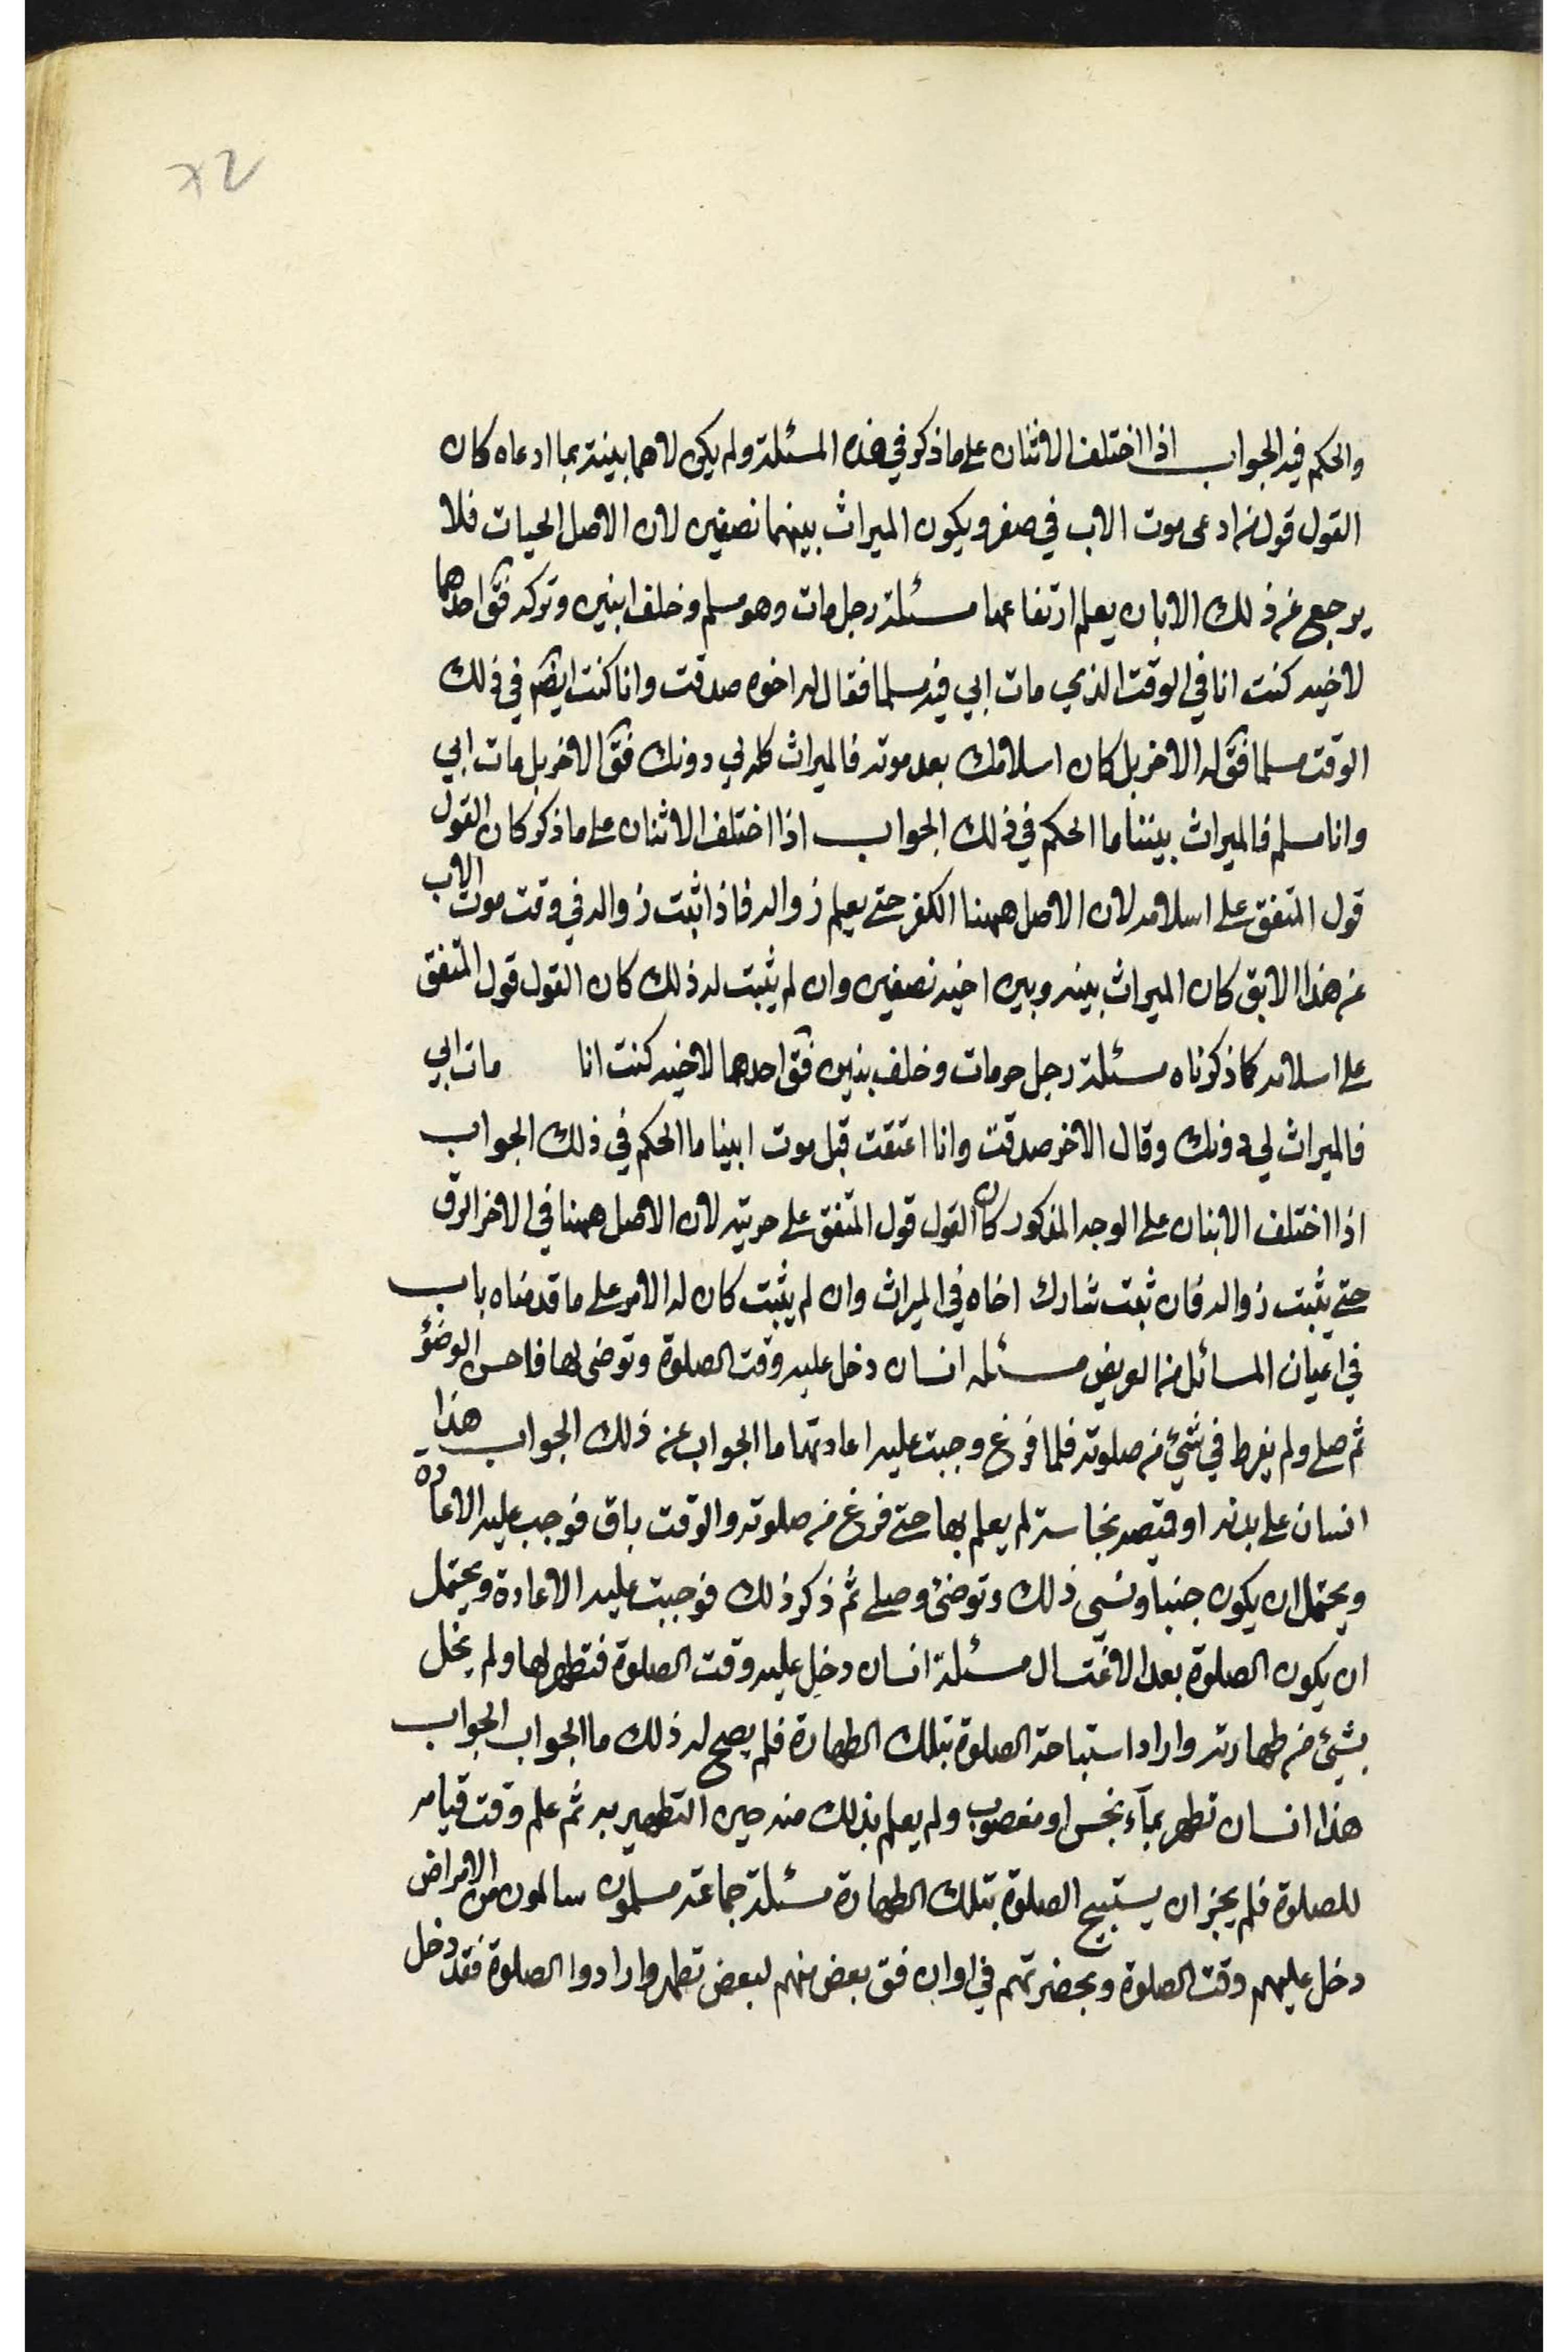 ٧٢
والحكم فيه الجواب اذا اختلف الاثنان على ما ذكر في هذه المسئلة ولم يكن لاحدهما بينة بما ادعاه كان
القول قول من ادعى موت الاب في صفر ويكون الميراث بينهما نصفين لان الاصل الحيات فلا
يرجع عن ذلك الا بان يعلم ارتفاعها مسئلة رجل مات وهو مسلم وخلف ابنين وتركه فقٓ احدهما
لاخيه كنت انا في الوقت الذي مات ابي فيه مسلما فقال له اخوه صدقت وانا كنت ايضٓ في ذلك
الوقت مسلما فقٓ له الاخر بل كان اسلامك بعد موته فالميراث كله لي دونك فقٓ الاخر بل مات ابي
وانا مسلم فالميراث بيننا ما الحكم في ذلك الجواب اذا اختلف الاثنان على ما ذكر كان القول
قول المتفق على اسلامه لان الاصل ههنا الكفر حتى يعلم زواله فاذا ثبت زواله في وقت موت الاب
عن هذا الابق كان الميراث بينه وبين اخيه نصفين وان لم يثبت له ذلك كان القول قول المتفق
على اسلامه كما ذكرناه مسئلة رجل حر مات وخلف بنين فقٓ احدهما لاخيه كنت انا مات ابي
فالميراث لي دونك وقال الاخر صدقت وانا اعتقت قبل موت ابينا ما الحكم في ذلك الجواب
اذا اختلف الابنان على الوجه المذكور كان القول قول المتفق على حريته لان الاصل ههنا في الاخر الرق
حتى يثبت زواله فان ثبت شارك اخاه في الميراث وان لم يثبت كان له الامر على ما قدمناه باب
في اعيان المسائل من العويض مسئله انسان دخل عليه وقت الصلوة وتوضى لها فاحسن الوضؤ
ثم صلى ولم يفرط في شئ من صلوته فلما فرغ وجبت عليه اعادتها ما الجواب عن ذلك الجواب هذا
انسان على بدنه او قميصه نجاسة لم يعلم بها حتى فرغ من صلوته والوقت باق فوجب عليه الاعاده
ويحتمل ان يكون جنبا ونسى ذلك وتوضئ وصلى ثم ذكر ذلك فوجبت عليه الاعادة ويحتمل
ان يكون الصلوة بعد الاغتسال مسئلة انسان دخل عليه وقت الصلوة فتطهر لها ولم يخل
بشئ من طهارته واراد استباحة الصلوة بتلك الطهارة فلم يصح له ذلك ما الجواب الجواب
هذا انسان تطهر بمآء نجس او مغصوب ولم يعلم بذلك منه حين التطهير به ثم علم وقت قيامه
للصلوة فلم يجز ان يستبيح الصلوة بتلك الطهارة مسئلة جماعة مسلمون سالمون من الامراض
دخل عليهم وقت الصلوة وبحضرتهم في اوان فق بعض منهم لبعض تطهروا وارادوا الصلوة فقد دخل